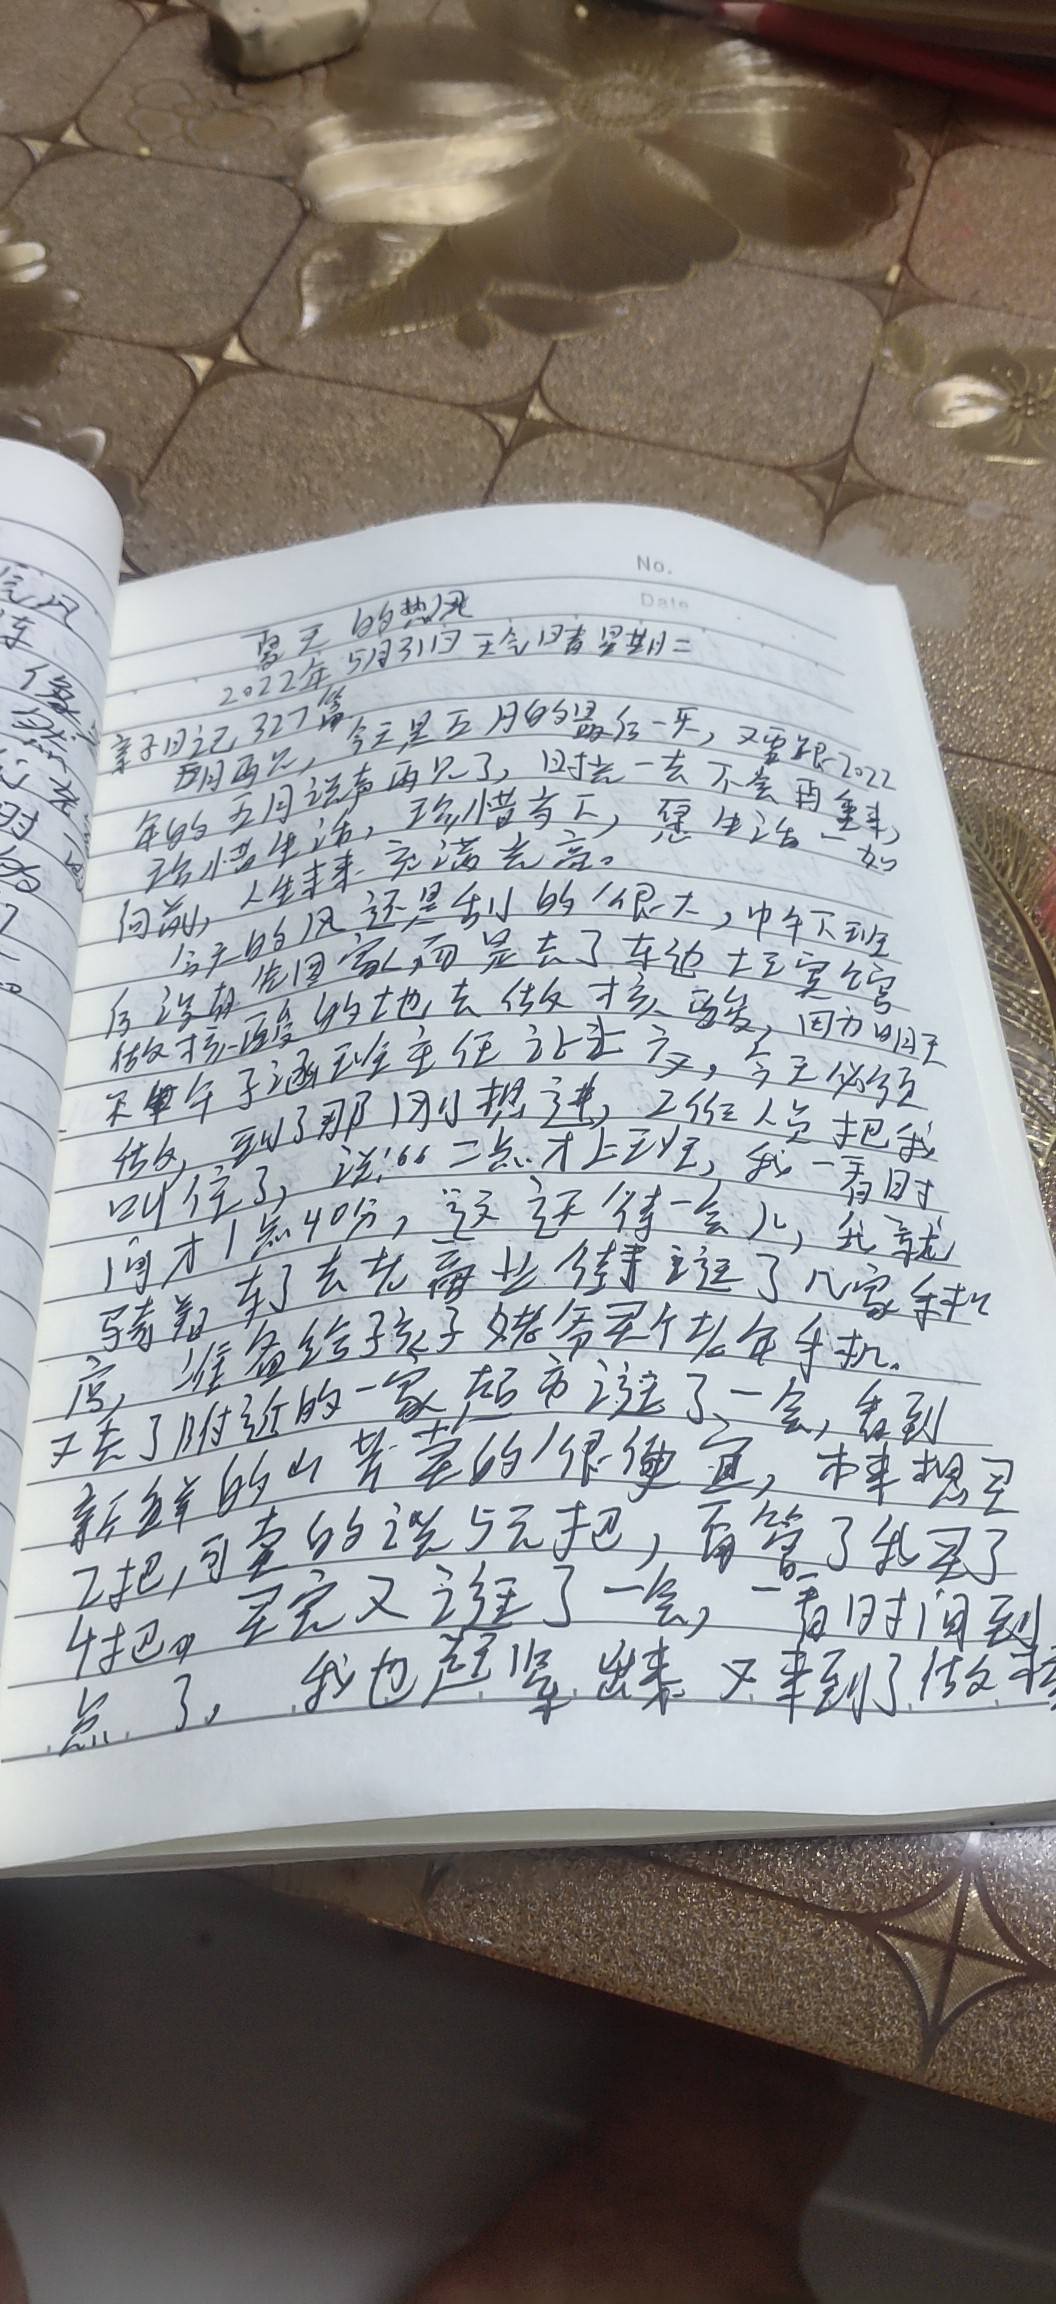 No.
Date
夏天的热风
2022年5月31日天气晴星期二
亲子日记327篇
五月再见,今天是五月的最后一天,又要跟2022
年的五月说声再见了,时光一去不会再重来,
珍惜生活,珍惜当下,愿生活一如
向前,人生未来充满光亮。
今天的风还是刮的很大,中午下班
后没有先回家,而是去了东边
做核酸的地去做核酸,因为明天
子涵班主任让上交,今天必须
做,到了那刚想进,工作人员把我
叫住了,说:“二点才上班,我一看时
间才1点40分,这还待一会儿,我就
骑着车子去尤商业街逛了几家手机
店,准备给孩子姥爷买个老年手机。
又去了附近的一家超市逛了一会,看到
新鲜的山苦菜的很便宜,本来想买
2把,可卖的说5元3把,我买了
4把。买完又逛了一会,一看时间到
点了,我也赶紧出来又来到了做核
风
像
时
的